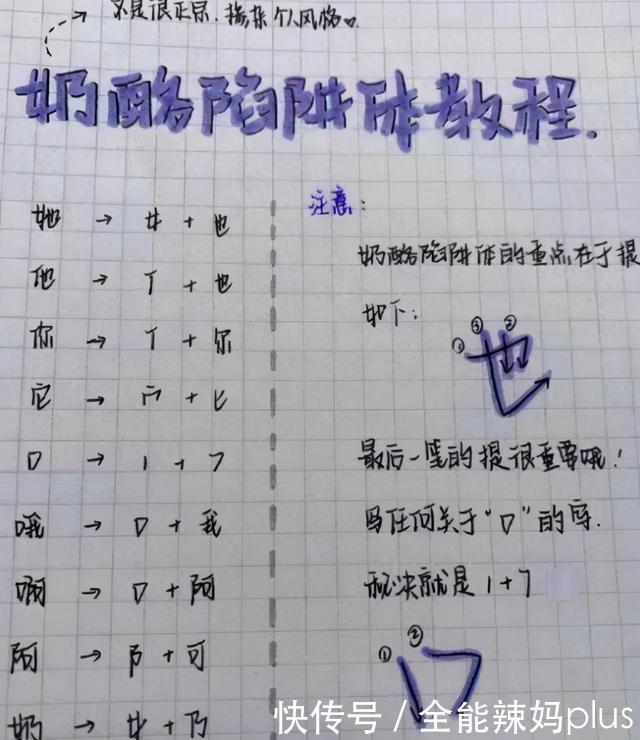 不是很正宗,掺杂个人风格
奶酪陷阱体教程.
她 → 女 + 也
他 → 亻 + 也
你 → 亻 + 尔
它 → 宀 + 匕
口 → 1 + 7
哦 → 口 + 我
啊 → 口 + 阿
阿 → 阝 + 可
奶 → 女 + 乃
注意:
奶酪陷阱体的重点在于提
如下:
① ③ ②
也
最后一笔的提很重要哦!
写任何关于“口”的字.
秘诀就是 1 + 7
① ②
口
快传号 / 全能辣妈plus